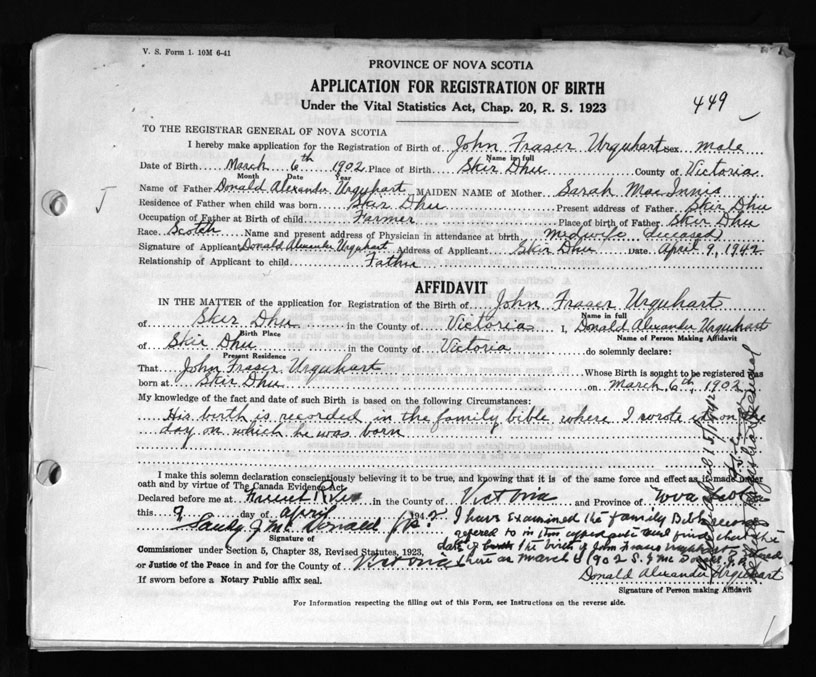 V. S. Form 1. 10M 6-41
PROVINCE OF NOVA SCOTIA
APPLICATION FOR REGISTRATION OF BIRTH
Under the Vital Statistics Act, Chap. 20, R. S. 1923
449
TO THE REGISTRAR GENERAL OF NOVA SCOTIA
I hereby make application for the Registration of Birth of John Fraser Urquhart sex male
Name in full
Date of Birth March 6th 1902 Place of Birth Skir Dhu County of Victoria
Month Date Year
Name of Father Donald Alexander Urquhart MAIDEN NAME of Mother Sarah MacInnis
Residence of Father when child was born Skir Dhu Present address of Father Skir Dhu
Occupation of Father at Birth of child Farmer Place of birth of Father Skir Dhu
Race Scotch Name and present address of Physician in attendance at birth Midwife (deceased)
Signature of Applicant Donald Alexander Urquhart Address of Applicant Skir Dhu Date April 9, 1942
Relationship of Applicant to child Father
AFFIDAVIT
IN THE MATTER of the application for Registration of the Birth of John Fraser Urquhart
Name in full
of Skir Dhu in the County of Victoria I, Donald Alexander Urquhart
Birth Place Name of Person Making Affidavit
of Skir Dhu in the County of Victoria do solemnly declare:
Present Residence
That John Fraser Urquhart Whose Birth is sought to be registered was
born at Skir Dhu on March 6th, 1902
My knowledge of the fact and date of such Birth is based on the following Circumstances:
His birth is recorded in the family bible where I wrote it on the
day on which he was born
I make this solemn declaration conscientiously believing it to be true, and knowing that it is of the same force and effect as if made under
oath and by virtue of The Canada Evidence Act.
Declared before me at in the County of Victoria and Province of Nova Scotia
this 9 day of April 1942
Sandy J McDonald J.P.
I have Examined the family Bible record
referred to in this affidavit and find that the
date of the birth of John Fraser Urquhart
is March 6 1902 S. J. McDonald J.P.
Signature of
Commissioner under Section 5, Chapter 38, Revised Statutes, 1923,
or Justice of the Peace in and for the County of Victoria
Donald Alexander Urquhart
If sworn before a Notary Public affix seal.
Signature of Person making Affidavit
For Information respecting the filling out of this Form, see Instructions on the reverse side.